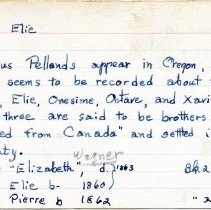 Elie
us Pellands appear in Oregon,
seems to be recorded about
, Elie, Onesime, Octave, and Xavi
three are said to be brothers
ed from Canada" and settled i
ty.
Wagner
"Elizabeth", d. 1863 Bk 2
Elie b- 1860
Pierre b 1862 "